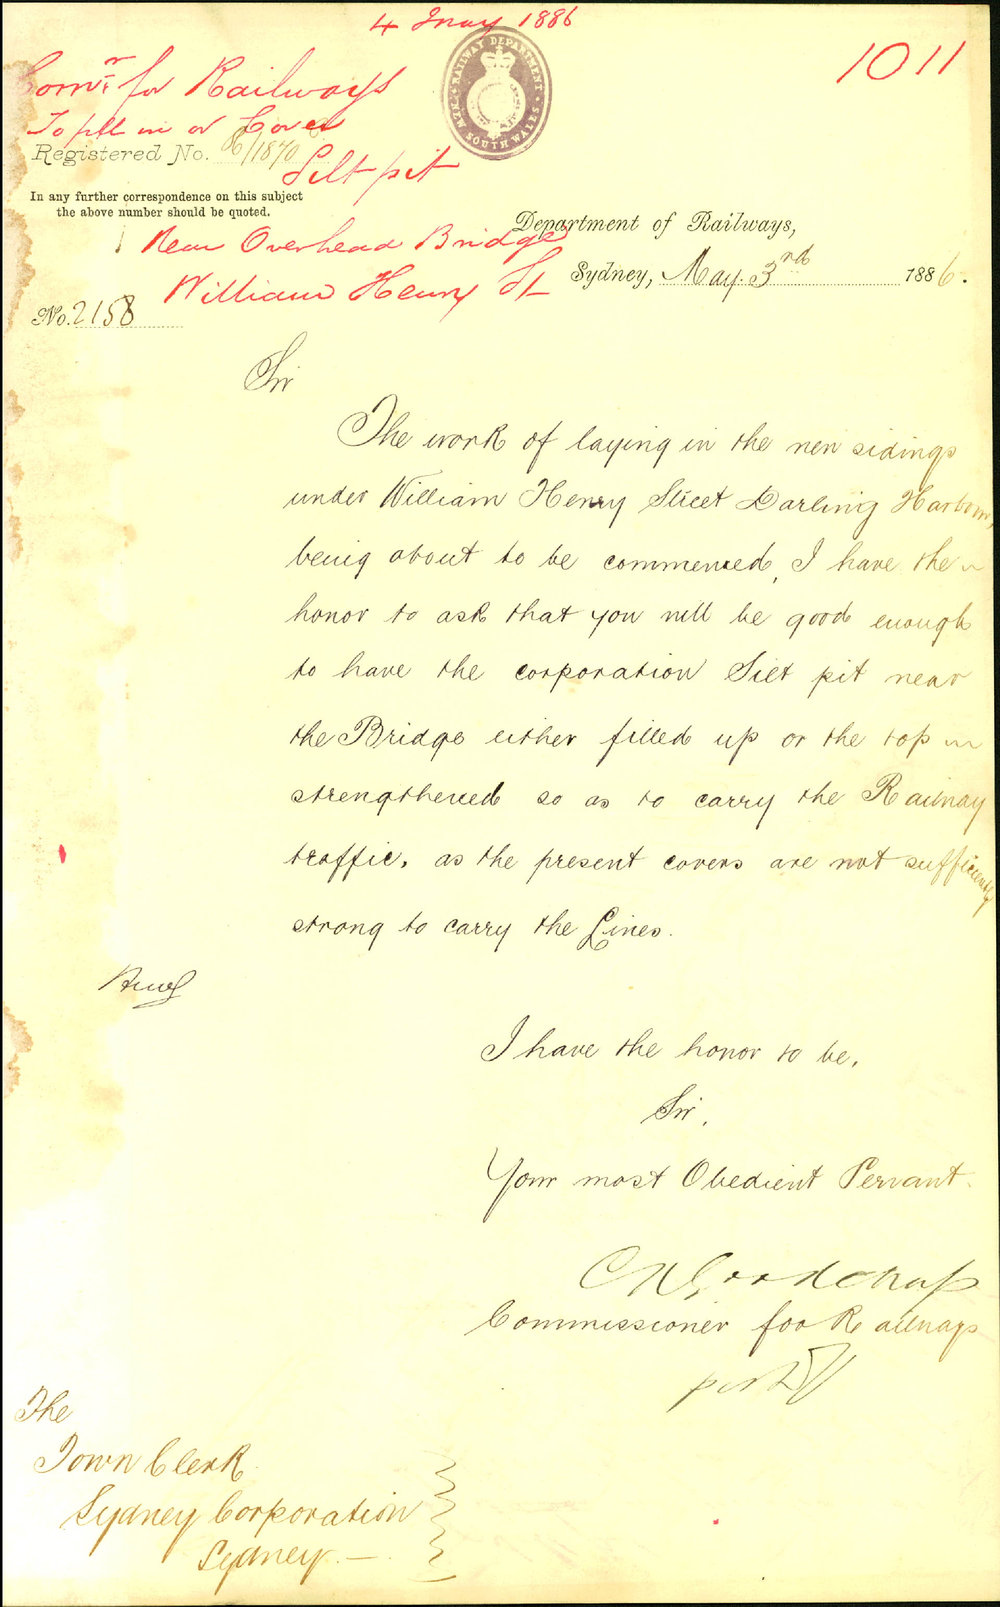 4 May 1886
1011
Comr. for Railways
To fill in or Cover
Silt pit
Near Overhead Bridge
William Henry St
RAILWAY DEPARTMENT
NEW SOUTH WALES
Registered No. 86/1870
In any further correspondence on this subject
the above number should be quoted.
Department of Railways,
Sydney, May 3rd 1886.
No. 2158
Sir
The work of laying in the new sidings
under William Henry Street Darling Harbour,
being about to be commenced, I have the
honor to ask that you will be good enough
to have the corporation Silt pit near
the Bridge either filled up or the top
strengthened so as to carry the Railway
traffic, as the present covers are not sufficiently
strong to carry the Lines.
I have the honor to be,
Sir,
Your most Obedient Servant.
Ch Goodchap
Commissioner for Railways
The
Town Clerk
Sydney Corporation
Sydney.